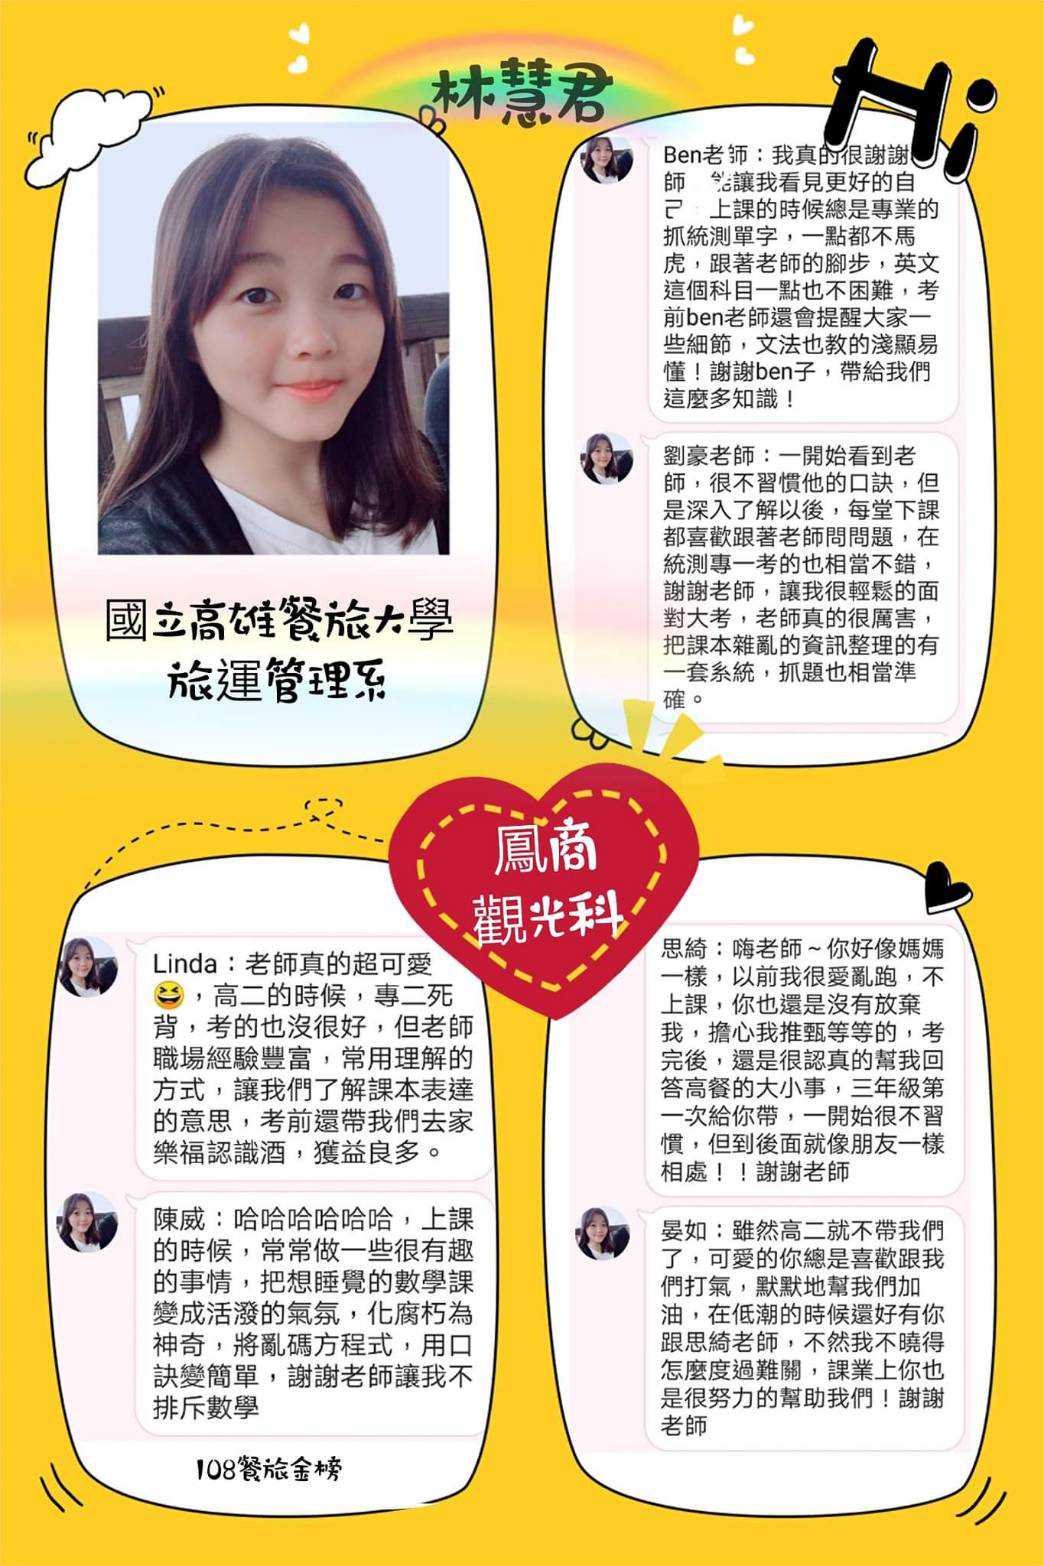 林慧君
Hi
國立高雄餐旅大學
旅運管理系
Ben老師：我真的很謝謝
師 能讓我看見更好的自
己 上課的時候總是專業的
抓統測單字，一點都不馬
虎，跟著老師的腳步，英文
這個科目一點也不困難，考
前ben老師還會提醒大家一
些細節，文法也教的淺顯易
懂！謝謝ben子，帶給我們
這麼多知識！
劉豪老師：一開始看到老
師，很不習慣他的口訣，但
是深入了解以後，每堂下課
都喜歡跟著老師問問題，在
統測專一考的也相當不錯，
謝謝老師，讓我很輕鬆的面
對大考，老師真的很厲害，
把課本雜亂的資訊整理的有
一套系統，抓題也相當準
確。
鳳商
觀光科
Linda：老師真的超可愛
😆，高二的時候，專二死
背，考的也沒很好，但老師
職場經驗豐富，常用理解的
方式，讓我們了解課本表達
的意思，考前還帶我們去家
樂福認識酒，獲益良多。
陳威：哈哈哈哈哈哈，上課
的時候，常常做一些很有趣
的事情，把想睡覺的數學課
變成活潑的氣氛，化腐朽為
神奇，將亂碼方程式，用口
訣變簡單，謝謝老師讓我不
排斥數學
108餐旅金榜
思綺：嗨老師～你好像媽媽
一樣，以前我很愛亂跑，不
上課，你也還是沒有放棄
我，擔心我推甄等等的，考
完後，還是很認真的幫我回
答高餐的大小事，三年級第
一次給你帶，一開始很不習
慣，但到後面就像朋友一樣
相處！！謝謝老師
晏如：雖然高二就不帶我們
了，可愛的你總是喜歡跟我
們打氣，默默地幫我們加
油，在低潮的時候還好有你
跟思綺老師，不然我不曉得
怎麼度過難關，課業上你也
是很努力的幫助我們！謝謝
老師